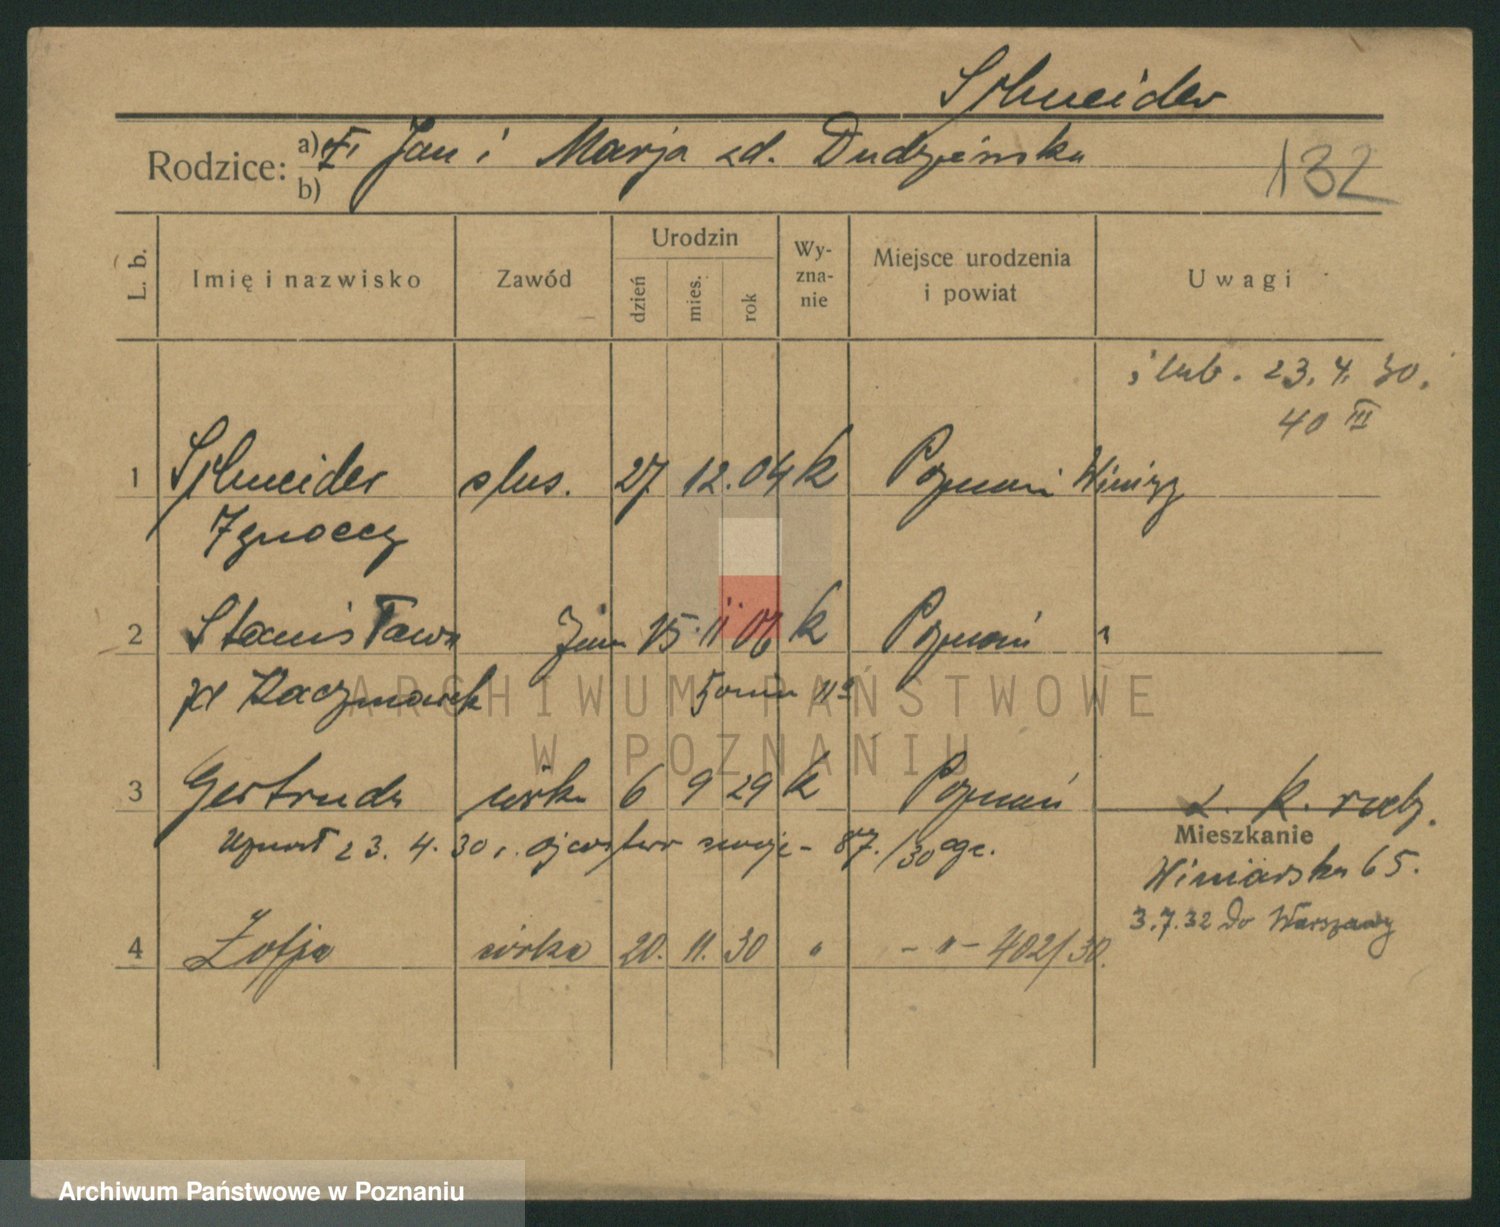 Schneider
Rodzice: a) Jan i Marja zd. Dudzińska
b)
132
L. b.
Imię i nazwisko
Zawód
Urodzin
dzień
mies.
rok
Wy-
zna-
nie
Miejsce urodzenia
i powiat
Uwagi
ślub. 23. 4. 30.
40 III
1 Schneider ślus. 27. 12. 04 k Poznań Winiary
Ignacy
2 Stanisława żona 15. 11 06 k Poznań "
zd Kaczmarek
3 Gertruda córka 6 9 29 k Poznań
Uznał 23. 4. 30 r. ojcostwo swoje - 87./30
Mieszkanie
Winiarska 65.
3.7.32 do Warszawy
4 Zofja córka 20. 11. 30 " - " - 402/30.
ARCHIWUM PAŃSTWOWE
W POZNANIU
Archiwum Państwowe w Poznaniu